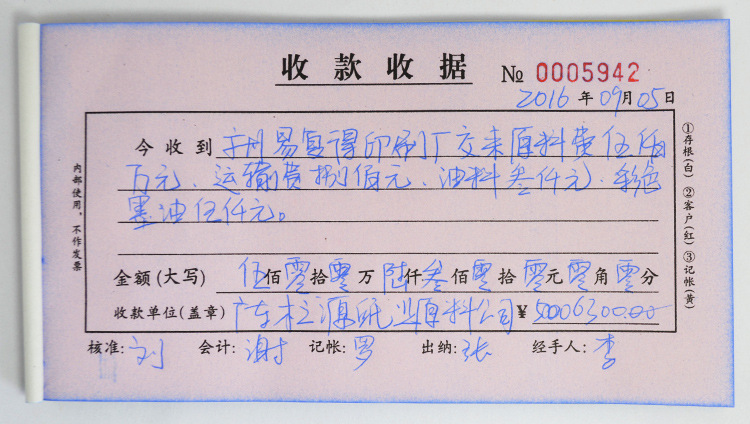 收款收据 № 0005942
2016年09月05日
今收到 广州易复得印刷厂交来原料费伍佰
万元、运输费捌佰元、油料叁仟元、彩色
墨油伍仟元。
金额(大写) 伍佰零拾零万陆仟叁佰零拾零元零角零分
收款单位(盖章) 广东 源纸业原料公司 ¥ 5006300.00
核准:刘 会计:谢 记帐:罗 出纳:张 经手人:李
内部使用,不作发票
①存根(白) ②客户(红) ③记帐(黄)